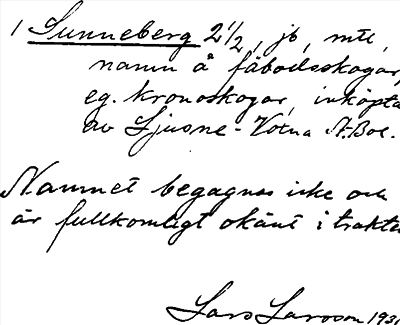 1 Sunneberg 2½, jb, mtl,
namn å fäbodsskogar,
eg. kronoskogar, inköpta
av Ljusne-Voxna A.Bol.
Namnet begagnas icke och
är fullkomligt okänt i trakten
Lars Larsson 193